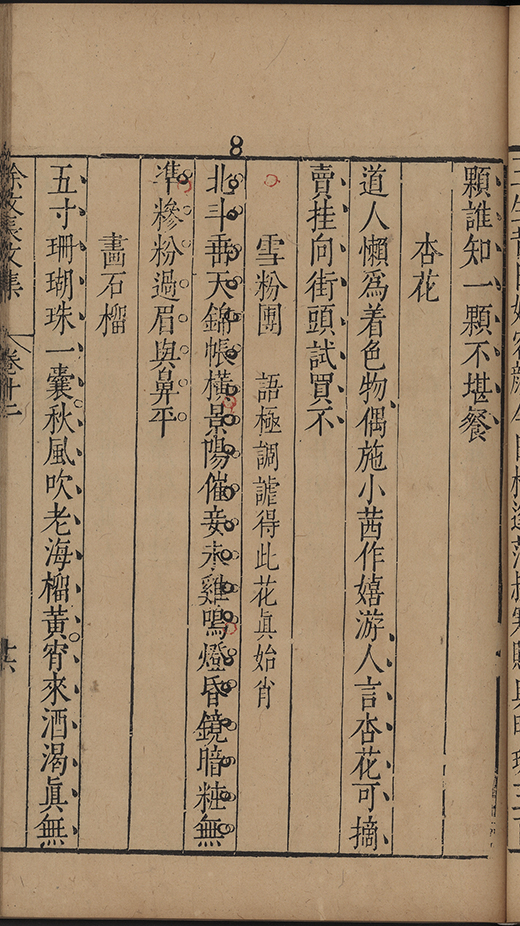 8
顆誰知一顆不堪餐
杏花
道人懶爲着色物偶施小茜作嬉游人言杏花可摘
賣挂向街頭試買不
雪粉團 語極調謔得此花眞始肖
北斗垂天錦帳橫景陽催妾未雞鳴燈昏鏡暗粧無
準糝粉過眉與鼻平
畵石榴
五寸珊瑚珠一囊秋風吹老海榴黃宵來酒渴眞無
徐文長文集 卷十二